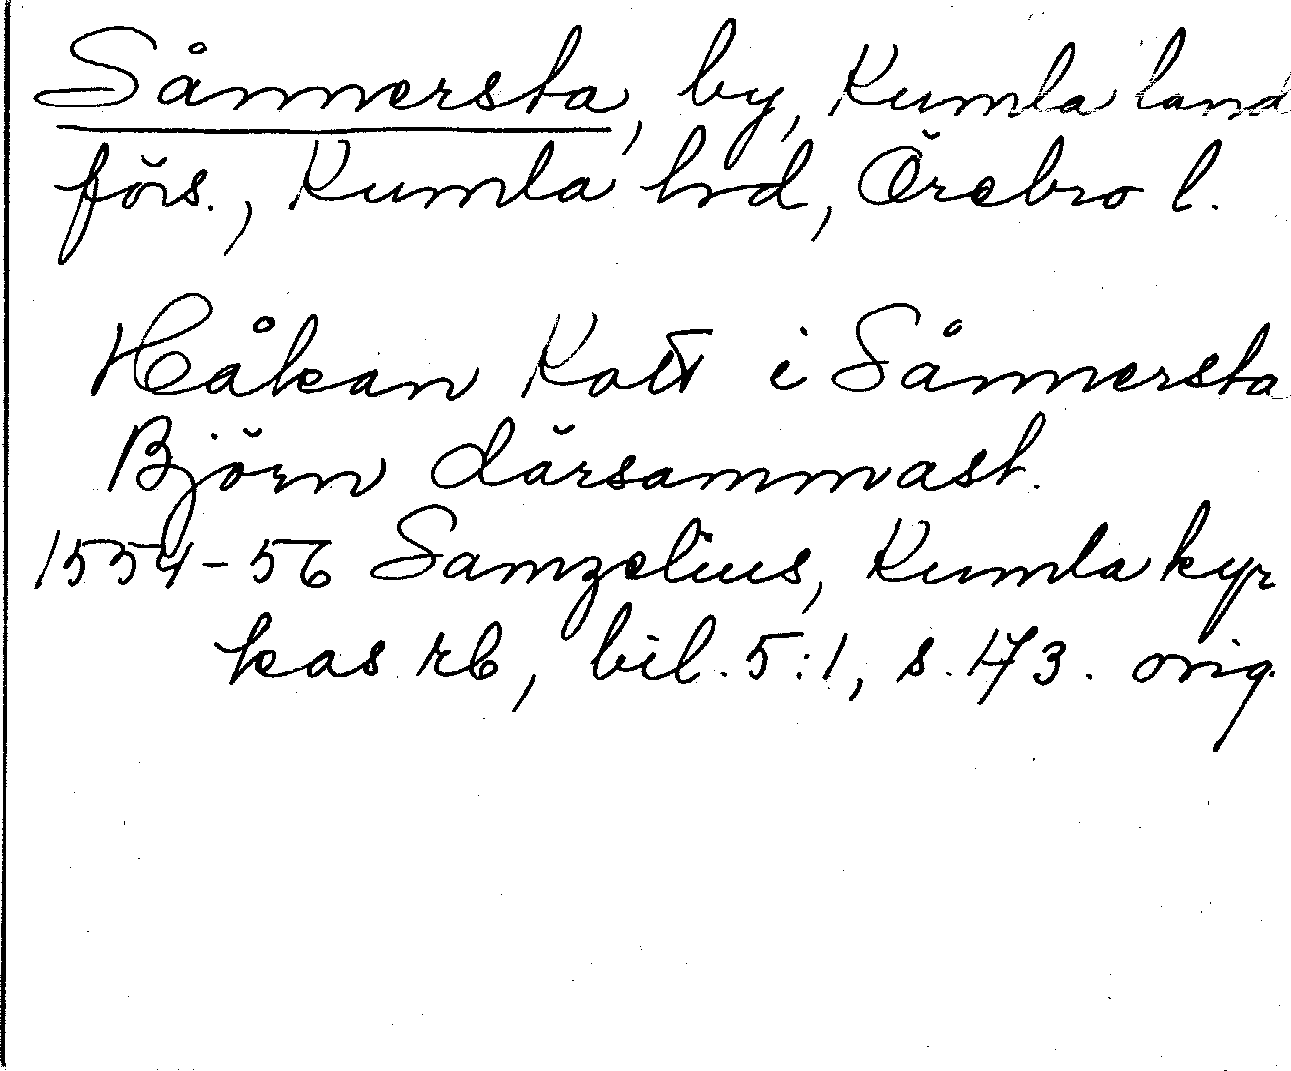 Sånnersta, by, Kumla land
förs., Kumla hrd, Örebro l.
Håkan Kott i Sånnersta
Björn därsammast.
1554-56 Samzelius, Kumla kyr
kas rb, bil. 5:1, s. 173. orig.